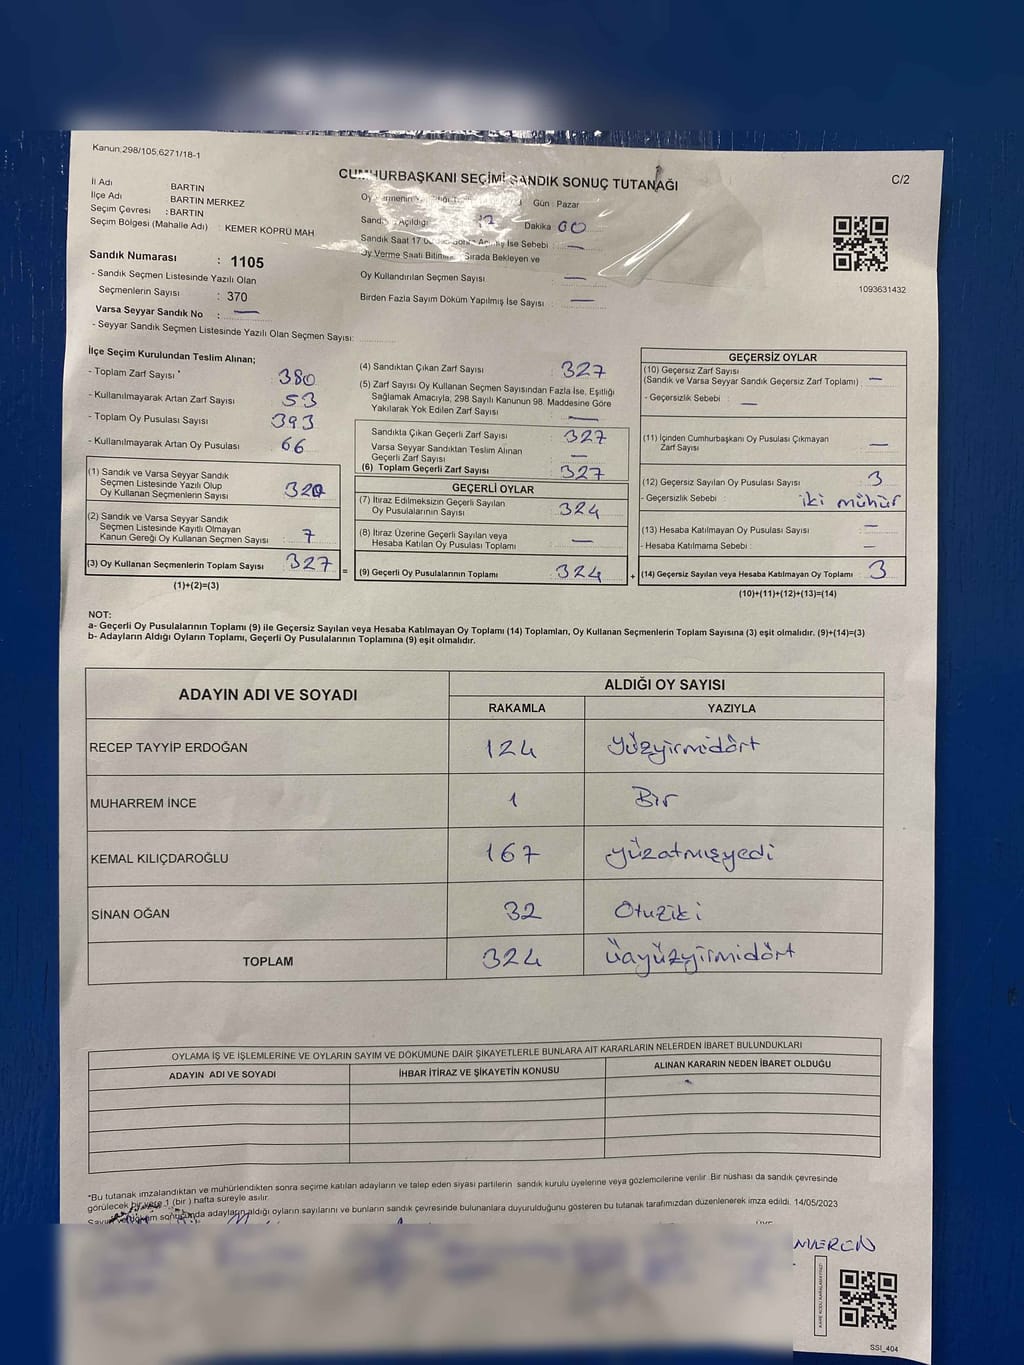 Kanun:298/105,6271/18-1
CUMHURBAŞKANI SEÇİMİ SANDIK SONUÇ TUTANAĞI
C/2
İl Adı BARTIN
İlçe Adı BARTIN MERKEZ
Seçim Çevresi : BARTIN
Seçim Bölgesi (Mahalle Adı) : KEMER KÖPRÜ MAH
Gün : Pazar
Dakika 00
Sandık Saat 17.00 İse Sebebi : —
Oy Verme Saati Sırada Bekleyen ve
Oy Kullandırılan Seçmen Sayısı —
Birden Fazla Sayım Döküm Yapılmış İse Sayısı : —
1093631432
Sandık Numarası : 1105
- Sandık Seçmen Listesinde Yazılı Olan
Seçmenlerin Sayısı : 370
Varsa Seyyar Sandık No : —
- Seyyar Sandık Seçmen Listesinde Yazılı Olan Seçmen Sayısı:
İlçe Seçim Kurulundan Teslim Alınan;
- Toplam Zarf Sayısı 380
- Kullanılmayarak Artan Zarf Sayısı 53
- Toplam Oy Pusulası Sayısı 393
- Kullanılmayarak Artan Oy Pusulası 66
(1) Sandık ve Varsa Seyyar Sandık
Seçmen Listesinde Yazılı Olup
Oy Kullanan Seçmenlerin Sayısı 320
(2) Sandık ve Varsa Seyyar Sandık
Seçmen Listesinde Kayıtlı Olmayan
Kanun Gereği Oy Kullanan Seçmen Sayısı : 7
(3) Oy Kullanan Seçmenlerin Toplam Sayısı 327
(1)+(2)=(3)
=
(4) Sandıktan Çıkan Zarf Sayısı 327
(5) Zarf Sayısı Oy Kullanan Seçmen Sayısından Fazla İse, Eşitliği
Sağlamak Amacıyla, 298 Sayılı Kanunun 98. Maddesine Göre
Yakılarak Yok Edilen Zarf Sayısı —
Sandıkta Çıkan Geçerli Zarf Sayısı 327
Varsa Seyyar Sandıktan Teslim Alınan
Geçerli Zarf Sayısı —
(6) Toplam Geçerli Zarf Sayısı 327
GEÇERLİ OYLAR
(7) İtiraz Edilmeksizin Geçerli Sayılan
Oy Pusulalarının Sayısı 324
(8) İtiraz Üzerine Geçerli Sayılan veya
Hesaba Katılan Oy Pusulası Toplamı —
(9) Geçerli Oy Pusulalarının Toplamı 324
+
GEÇERSİZ OYLAR
(10) Geçersiz Zarf Sayısı
(Sandık ve Varsa Seyyar Sandık Geçersiz Zarf Toplamı) : —
- Geçersizlik Sebebi : —
(11) İçinden Cumhurbaşkanı Oy Pusulası Çıkmayan
Zarf Sayısı —
(12) Geçersiz Sayılan Oy Pusulası Sayısı : 3
- Geçersizlik Sebebi : iki mühür
(13) Hesaba Katılmayan Oy Pusulası Sayısı —
- Hesaba Katılmama Sebebi : —
(14) Geçersiz Sayılan veya Hesaba Katılmayan Oy Toplamı 3
(10)+(11)+(12)+(13)=(14)
NOT:
a- Geçerli Oy Pusulalarının Toplamı (9) ile Geçersiz Sayılan veya Hesaba Katılmayan Oy Toplamı (14) Toplamları, Oy Kullanan Seçmenlerin Toplam Sayısına (3) eşit olmalıdır. (9)+(14)=(3)
b- Adayların Aldığı Oyların Toplamı, Geçerli Oy Pusulalarının Toplamına (9) eşit olmalıdır.
ADAYIN ADI VE SOYADI
ALDIĞI OY SAYISI
RAKAMLA YAZIYLA
RECEP TAYYİP ERDOĞAN 124 Yüzyirmidört
MUHARREM İNCE 1 Bir
KEMAL KILIÇDAROĞLU 167 Yüzatmışyedi
SİNAN OĞAN 32 Otuziki
TOPLAM 324 Üçyüzyirmidört
OYLAMA İŞ VE İŞLEMLERİNE VE OYLARIN SAYIM VE DÖKÜMÜNE DAİR ŞİKAYETLERLE BUNLARA AİT KARARLARIN NELERDEN İBARET BULUNDUKLARI
ADAYIN ADI VE SOYADI İHBAR İTİRAZ VE ŞİKAYETİN KONUSU ALINAN KARARIN NEDEN İBARET OLDUĞU
*Bu tutanak imzalandıktan ve mühürlendikten sonra seçime katılan adayların ve talep eden siyasi partilerin sandık kurulu üyelerine veya gözlemcilerine verilir. Bir nüshası da sandık çevresinde
görülecek bir yere 1 (bir) hafta süreyle asılır.
sonucunda adayların aldığı oyların sayılarını ve bunların sandık çevresinde bulunanlara duyurulduğunu gösteren bu tutanak tarafımızdan düzenlenerek imza edildi. 14/05/2023
SSI_404